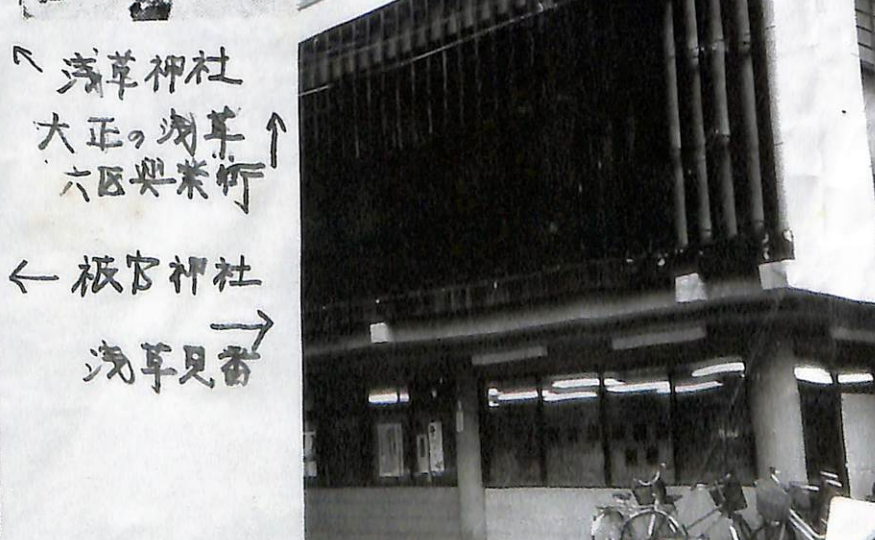 浅草神社
大正の浅草
六区興業町
被官神社
浅草見番